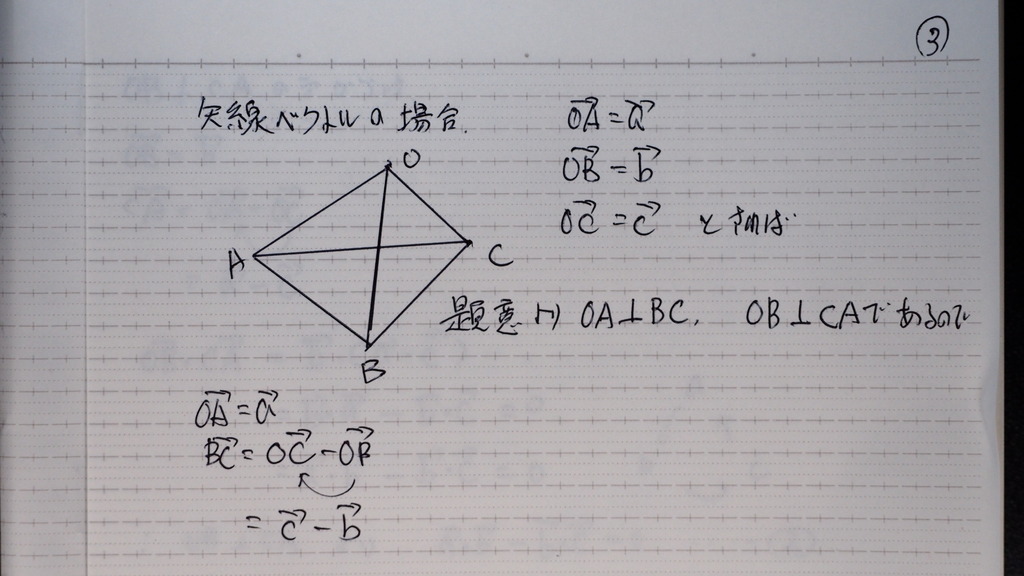 ③
矢線ベクトルの場合.
OA⃗ = a⃗
OB⃗ = b⃗
OC⃗ = c⃗ とすれば
O
A
C
B
題意より OA⊥BC, OB⊥CAであるので
OA⃗ = a⃗
BC⃗ = OC⃗ - OB⃗
= c⃗ - b⃗